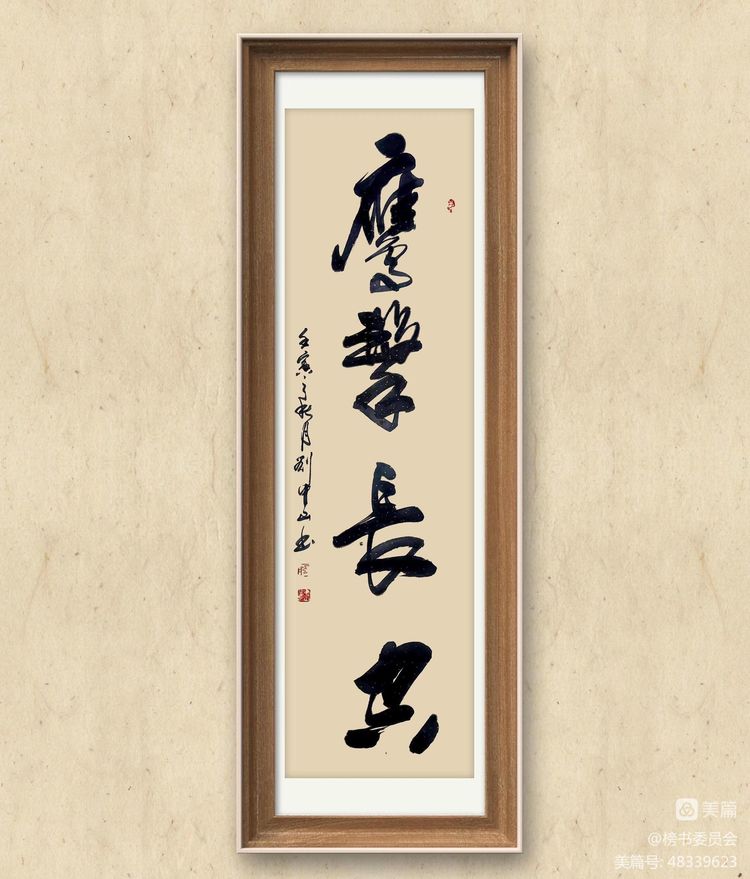 鷹擊長空
壬寅之秋月劉中山书
美篇
@榜书委员会
美篇号: 48339623